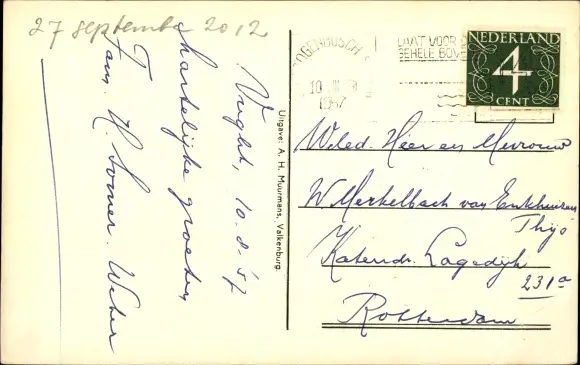 27 september 2012
Vught, 10.8.'57
Hartelijke groeten
Fam. H. Somer. Weber
Uitgave: A. H. Muurmans, Valkenburg.
TOGENBOSCH
10
1957
LAAT VOOR
GEHELE BOV
NEDERLAND
4
CENT
Weled. Heer en Mevrouw
W. Merkelbach van Enkhuizen
Thijs
Katendr. Lagedijk
231a
Rotterdam